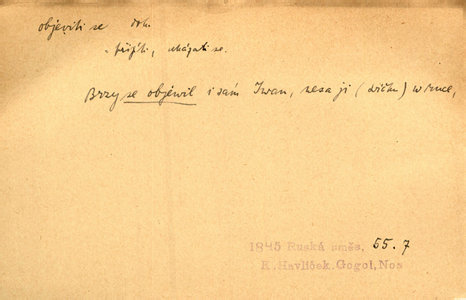 objeviti se dok.
přijíti, ukázati se.
Brzy se objewil i sám Iwan, nesa ji (             ) w ruce,
1845 Ruská směs, 55.7
K. Havlíček. Gogol, Nos